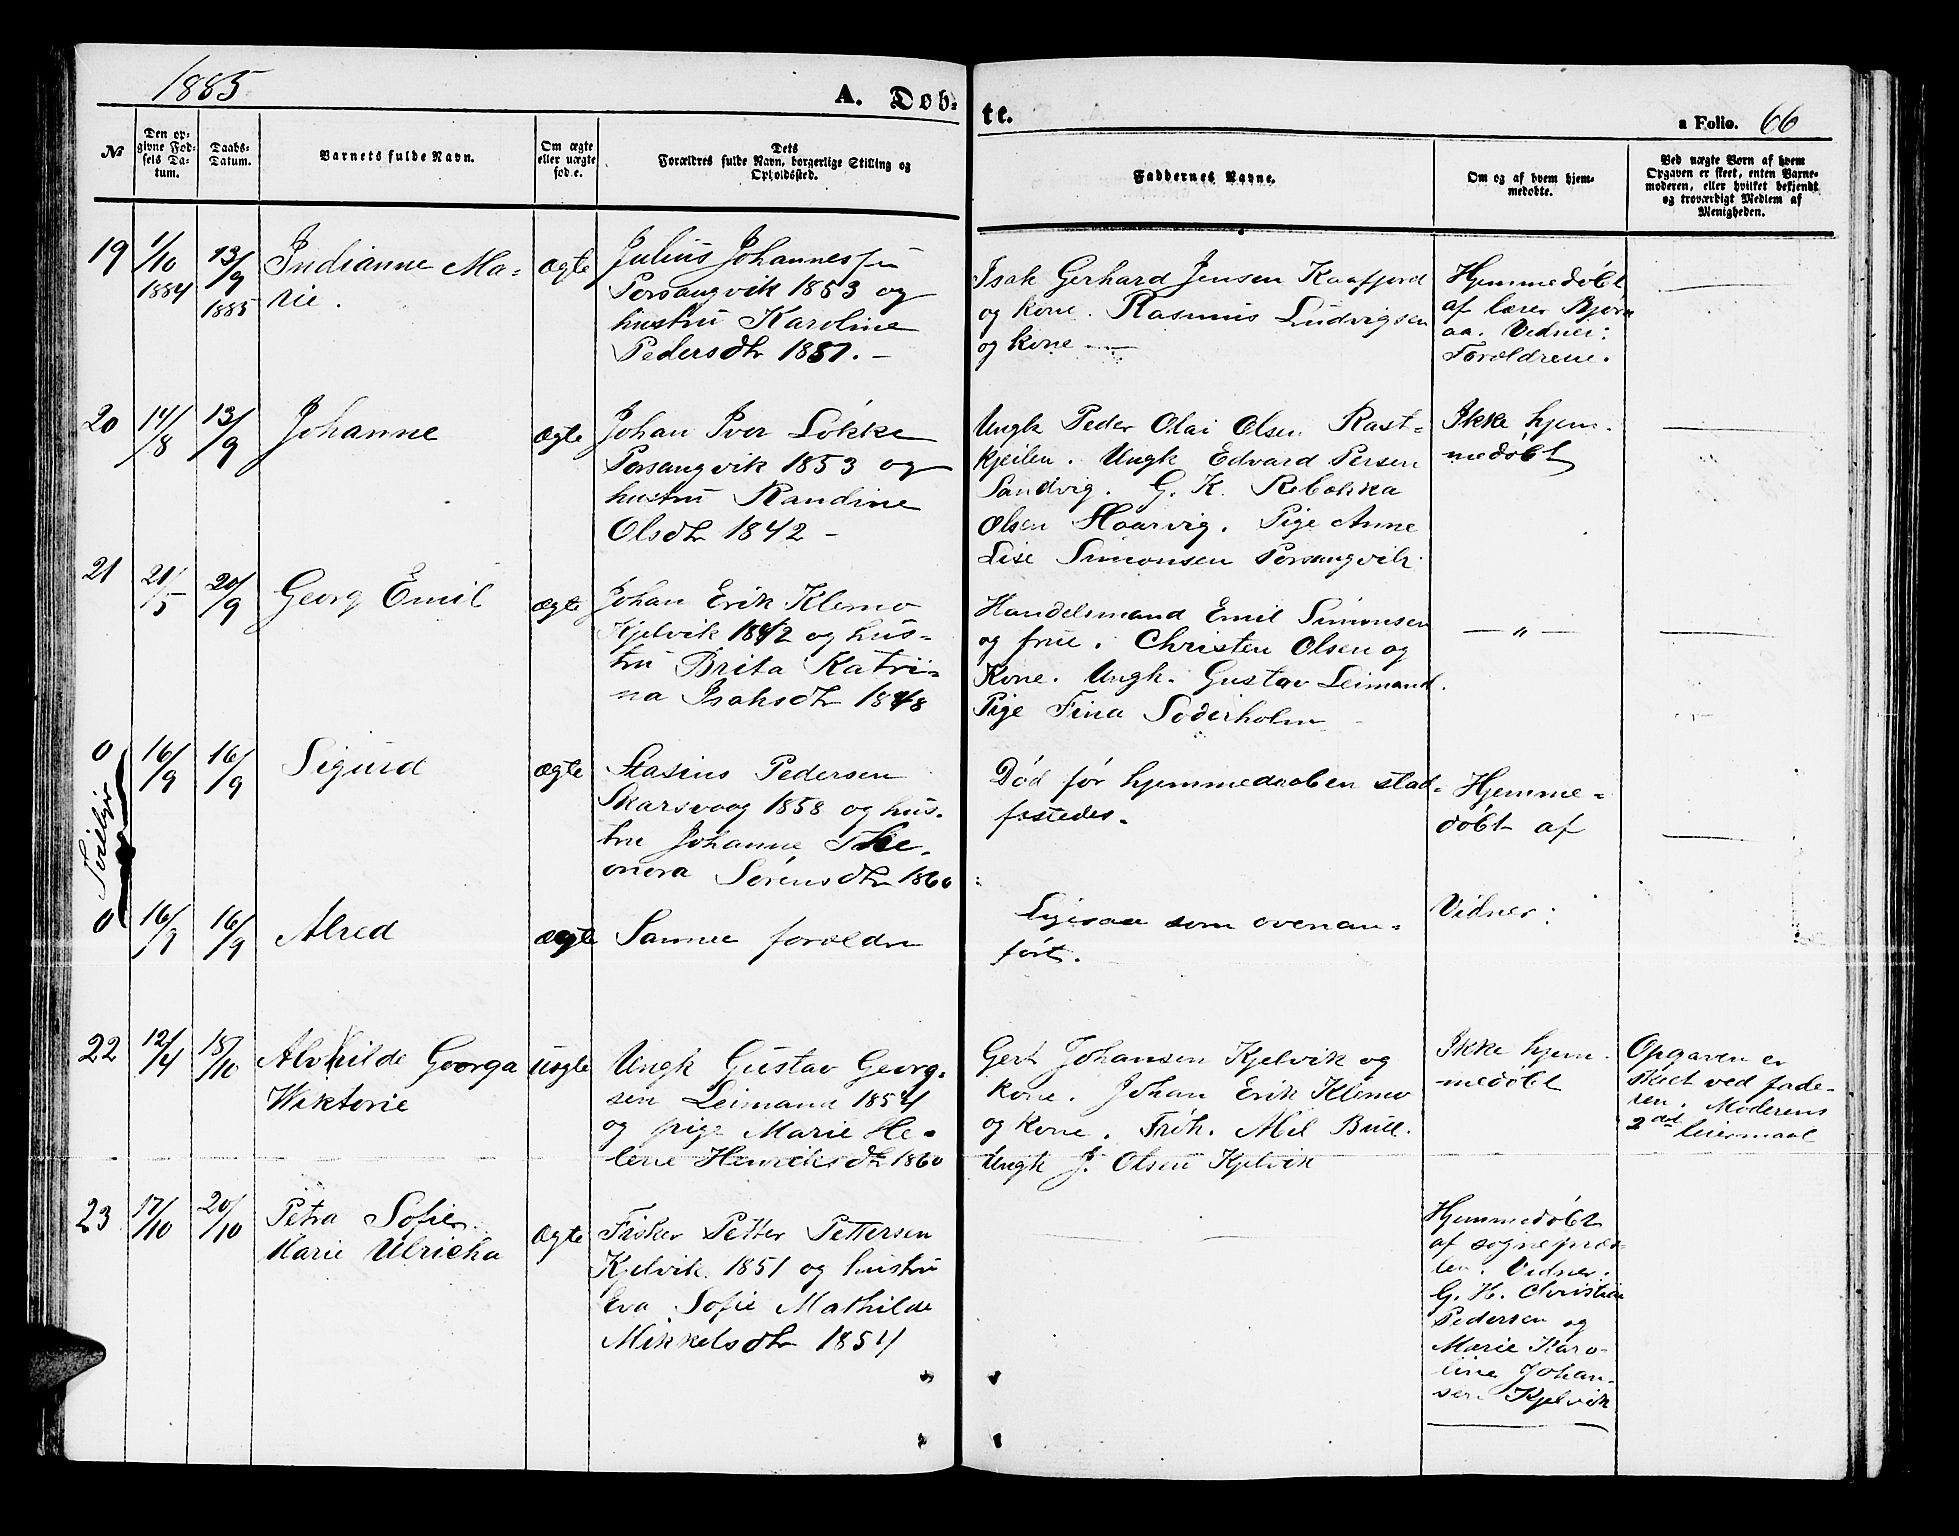 1885
A. Døb-
te.
a Folio. 66
№
Den op-
givne Fød-
sels Da-
tum.
Daabs-
Datum.
Barnets fulde Navn.
Om ægte
eller uægte
fød.e.
Dets
Forældres fulde Navn, borgerlige Stilling og
Opholdssted.
Faddernes Navne.
Om og af hvem hjem-
medøbte.
Ved uægte Børn af hvem
Opgaven er skeet, enten Barne-
moderen, eller hvilket bekjendt
og troværdigt Medlem af
Menigheden.
19
1/10
1884
13/9
1885
Indianne Ma-
rie.
ægte
Julius Johannessen
Porsangvik 1853 og
hustru Karoline
Pedersdtr 1851. -
Isak Gerhard Jensen Kaafjord
og kone. Rasmus Ludvigsen
og kone. —
Hjemmedøbt
af lærer Bjørn
aa. Vidner:
Forældrene.
20
14/8
13/9
Johanne
ægte
Johan Iver Løkke
Porsangvik 1853 og
hustru Randine
Olsdtr 1842 -
Ungk Peder Olai Olsen Rast-
kjeilen. Ungk Edvard Persen
Sandvig. G. K. Rebekka
Olsen Haarvig. Pige Anne
Lise Simonsen Porsangvik.
Ikke hjem-
medøbt
21
21/5
20/9
Georg Emil
ægte
Johan Erik Klemo
Kjelvik 1842 og hus-
tru Brita Katri-
na Isaksdtr 1848
Handelsmand Emil Simonsen
og frue. Christen Olsen og
Kone. Ungk. Gustav Leimand.
Pige Fina Soderholm
— „ —
Tvillinger
0
16/9
16/9
Sigurd
ægte
Stasius Pedersen
Skarsvaag 1858 og hus-
tru Johanne The-
onora Sørensdtr 1860
Død før hjemmedaaben stad-
fæstedes.
Hjemme-
døbt af
0
16/9
16/9
Alred
ægte
Samme forældre
Ligesaa som ovenan-
ført.
Vidner:
22
12/4
15/10
Alvhilde Georga
Wiktorie
uægte
Ungk Gustav Georg-
sen Leimand 1854
og pige Marie He-
lene Henriksdtr 1860
Gert Johansen Kjelvik og
kone. Johan Erik Klemo
og kone. Frøk. Mil Bull.
Ungk J. Olsen Kjelvik
Ikke hjem-
medøbt
Opgaven er
skeet ved fade-
ren. Moderens
2det leiermaal
23
17/10
20/10
Petra Sofie
Marie Ulricka
ægte
Fisker Petter Pettersen
Kjelvik 1851 og hustru
Eva Sofie Mathilde
Mikkelsdtr 1854
Hjemmedøbt
af sognepræs-
ten. Vidner.
G. H. Christian
Pedersen og
Marie Karo-
line Johan-
sen Kjelvik